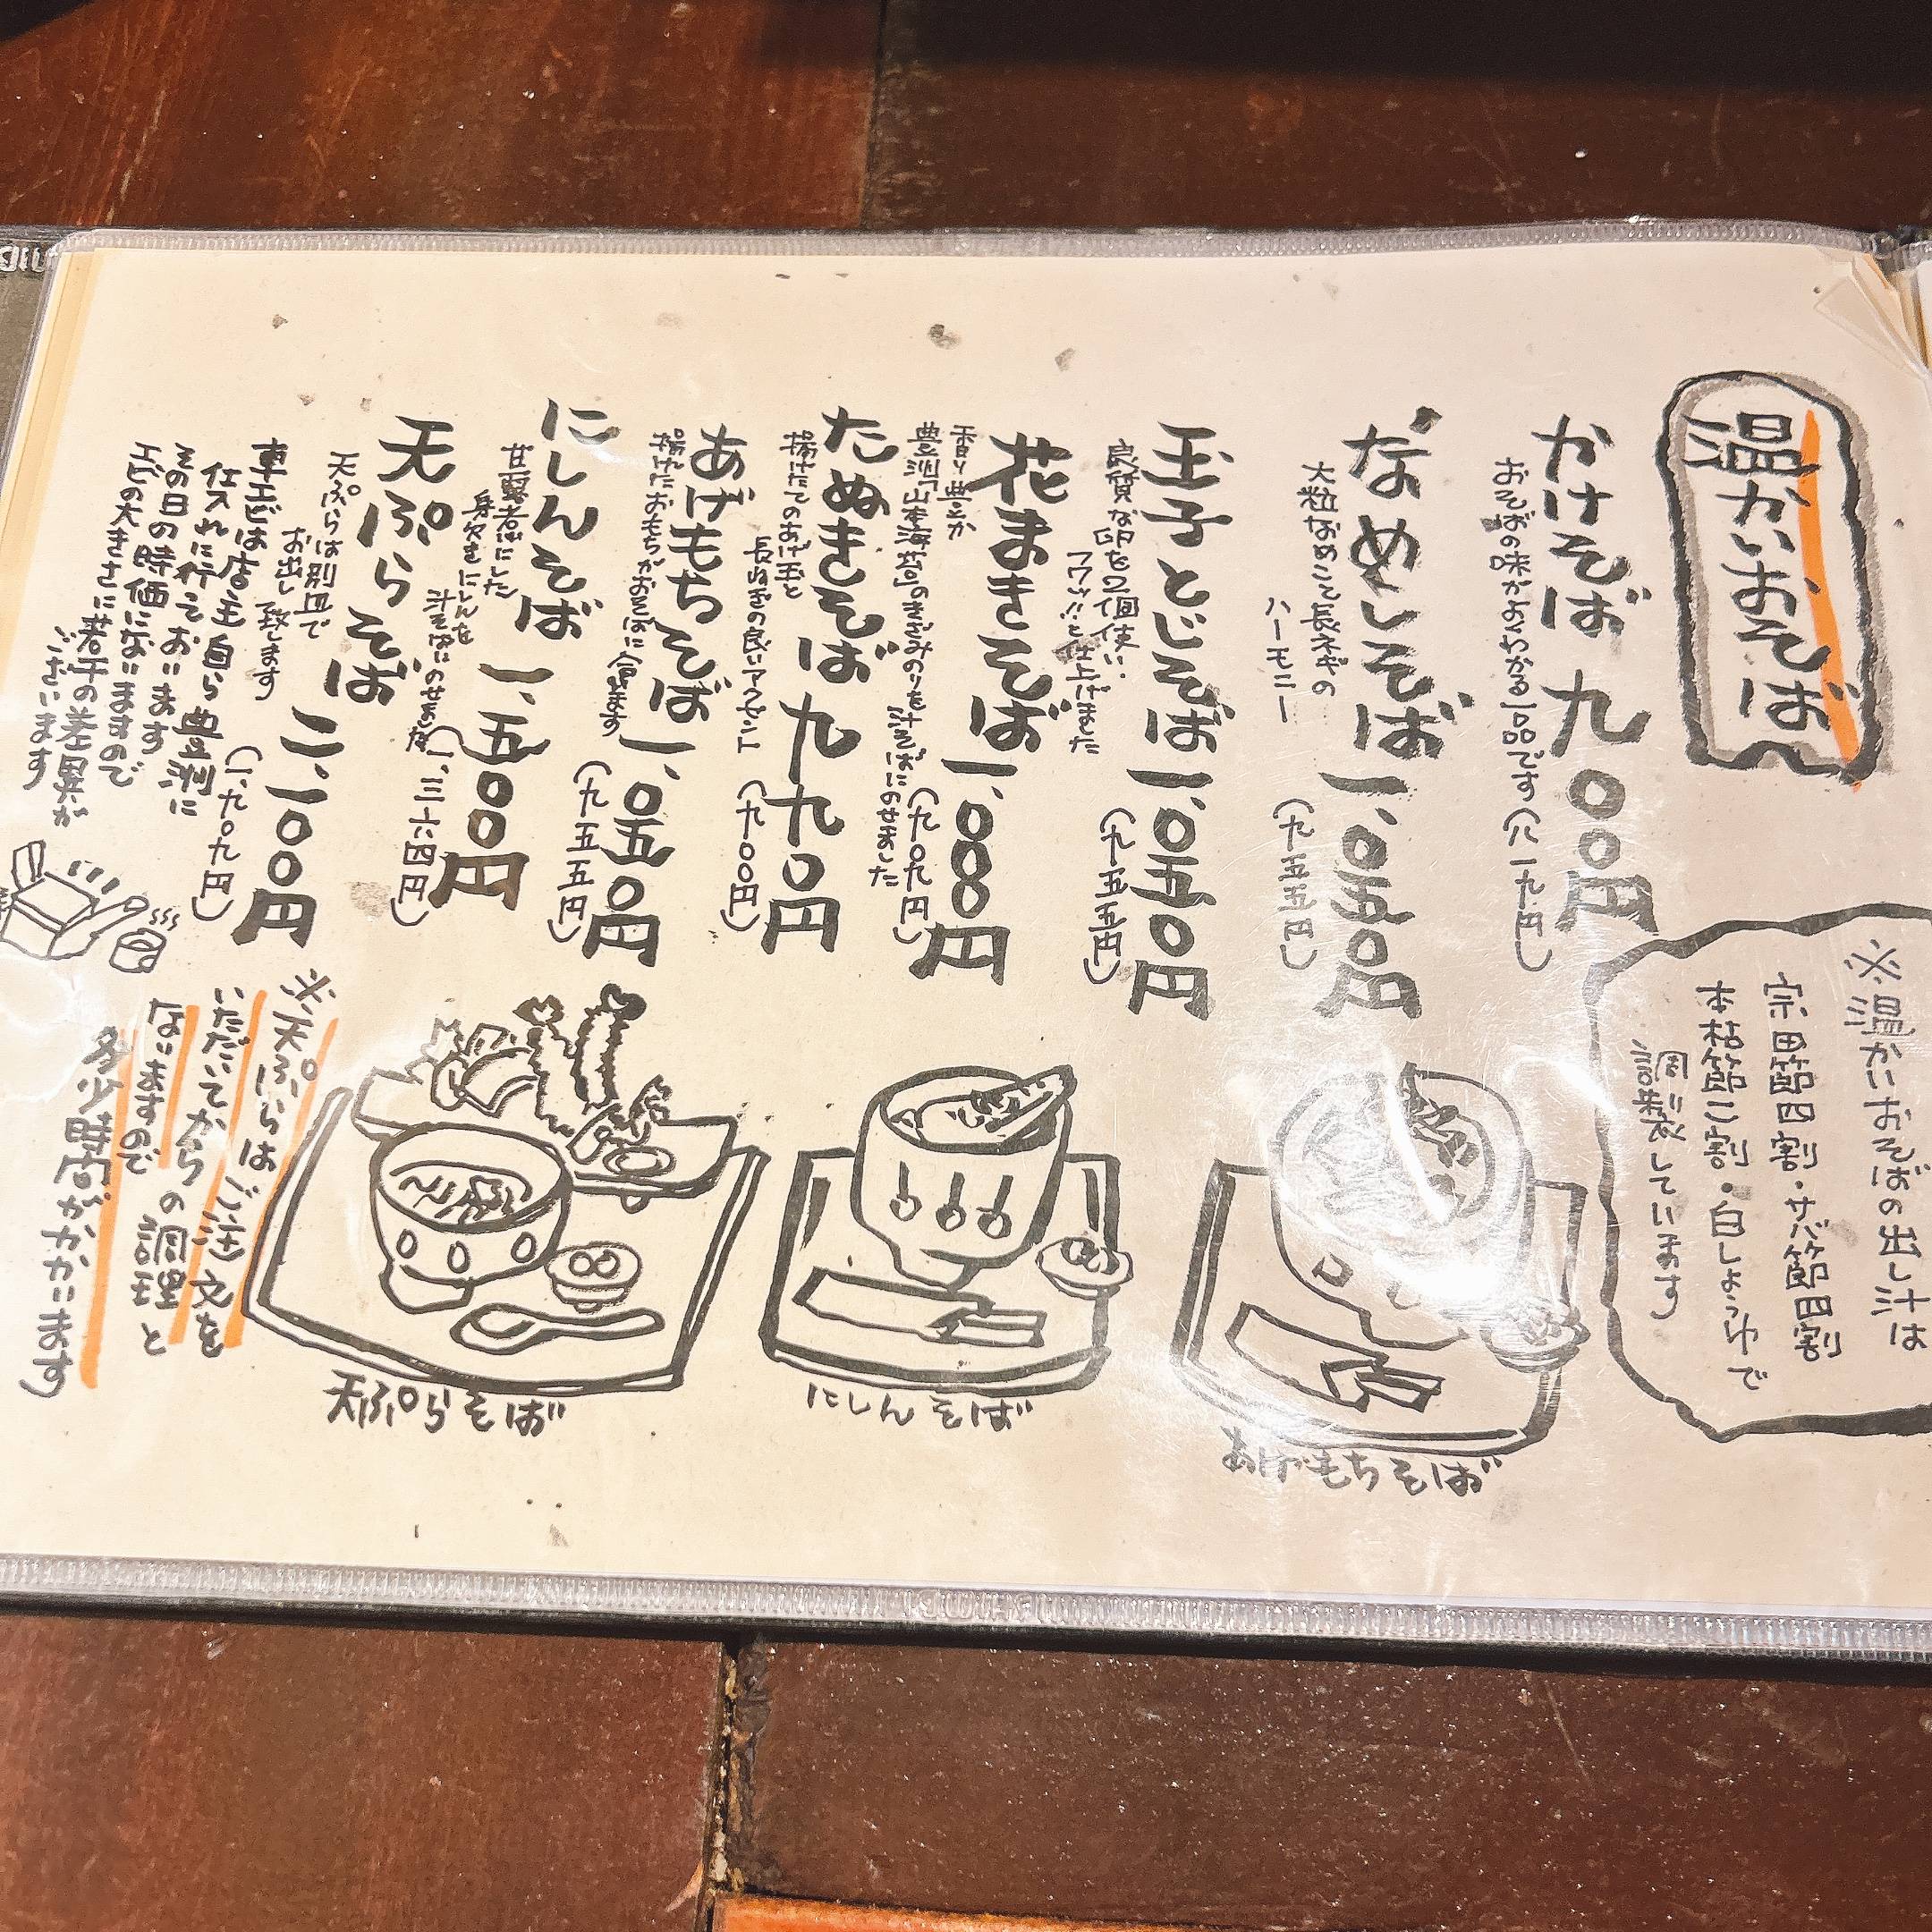 温かいおそば
※温かいおそばの出し汁は
宗田節四割・サバ節四割
本枯節二割・白しょうゆで
調製しています
かけそば 九〇〇円
おそばの味がよくわかる一品です(八一九円)
なめしそば 一、〇五〇円
大粒なめこと長ネギの
ハーモニー
(九五五円)
玉子とじそば 一、〇五〇円
良質な卵を2個使い、
フワッ!!と仕上げました
(九五五円)
花まきそば 一、〇〇〇円
香り豊か
豊洲「山本海苔」のきざみのりを汁そばにのせました
(九〇九円)
たぬきそば 九九〇円
揚げたてのあげ玉と
長ねぎの良いアクセント
(九〇〇円)
あげもちそば 一、〇五〇円
揚げたおもちがおそばに合います
(九五五円)
にしんそば 一、五〇〇円
甘露煮にした
身欠きにしんを
汁そばにのせました
(一、三六四円)
天ぷらそば 二、一〇〇円
天ぷらは別皿で
お出し致します
(一、九〇九円)
車エビは店主自ら豊洲に
仕入れに行っております
その日の時価になりますので
エビの大きさに若干の差異が
ございます
あげもちそば
にしんそば
天ぷらそば
※天ぷらはご注文を
いただいてからの調理と
なりますので
多少時間がかかります